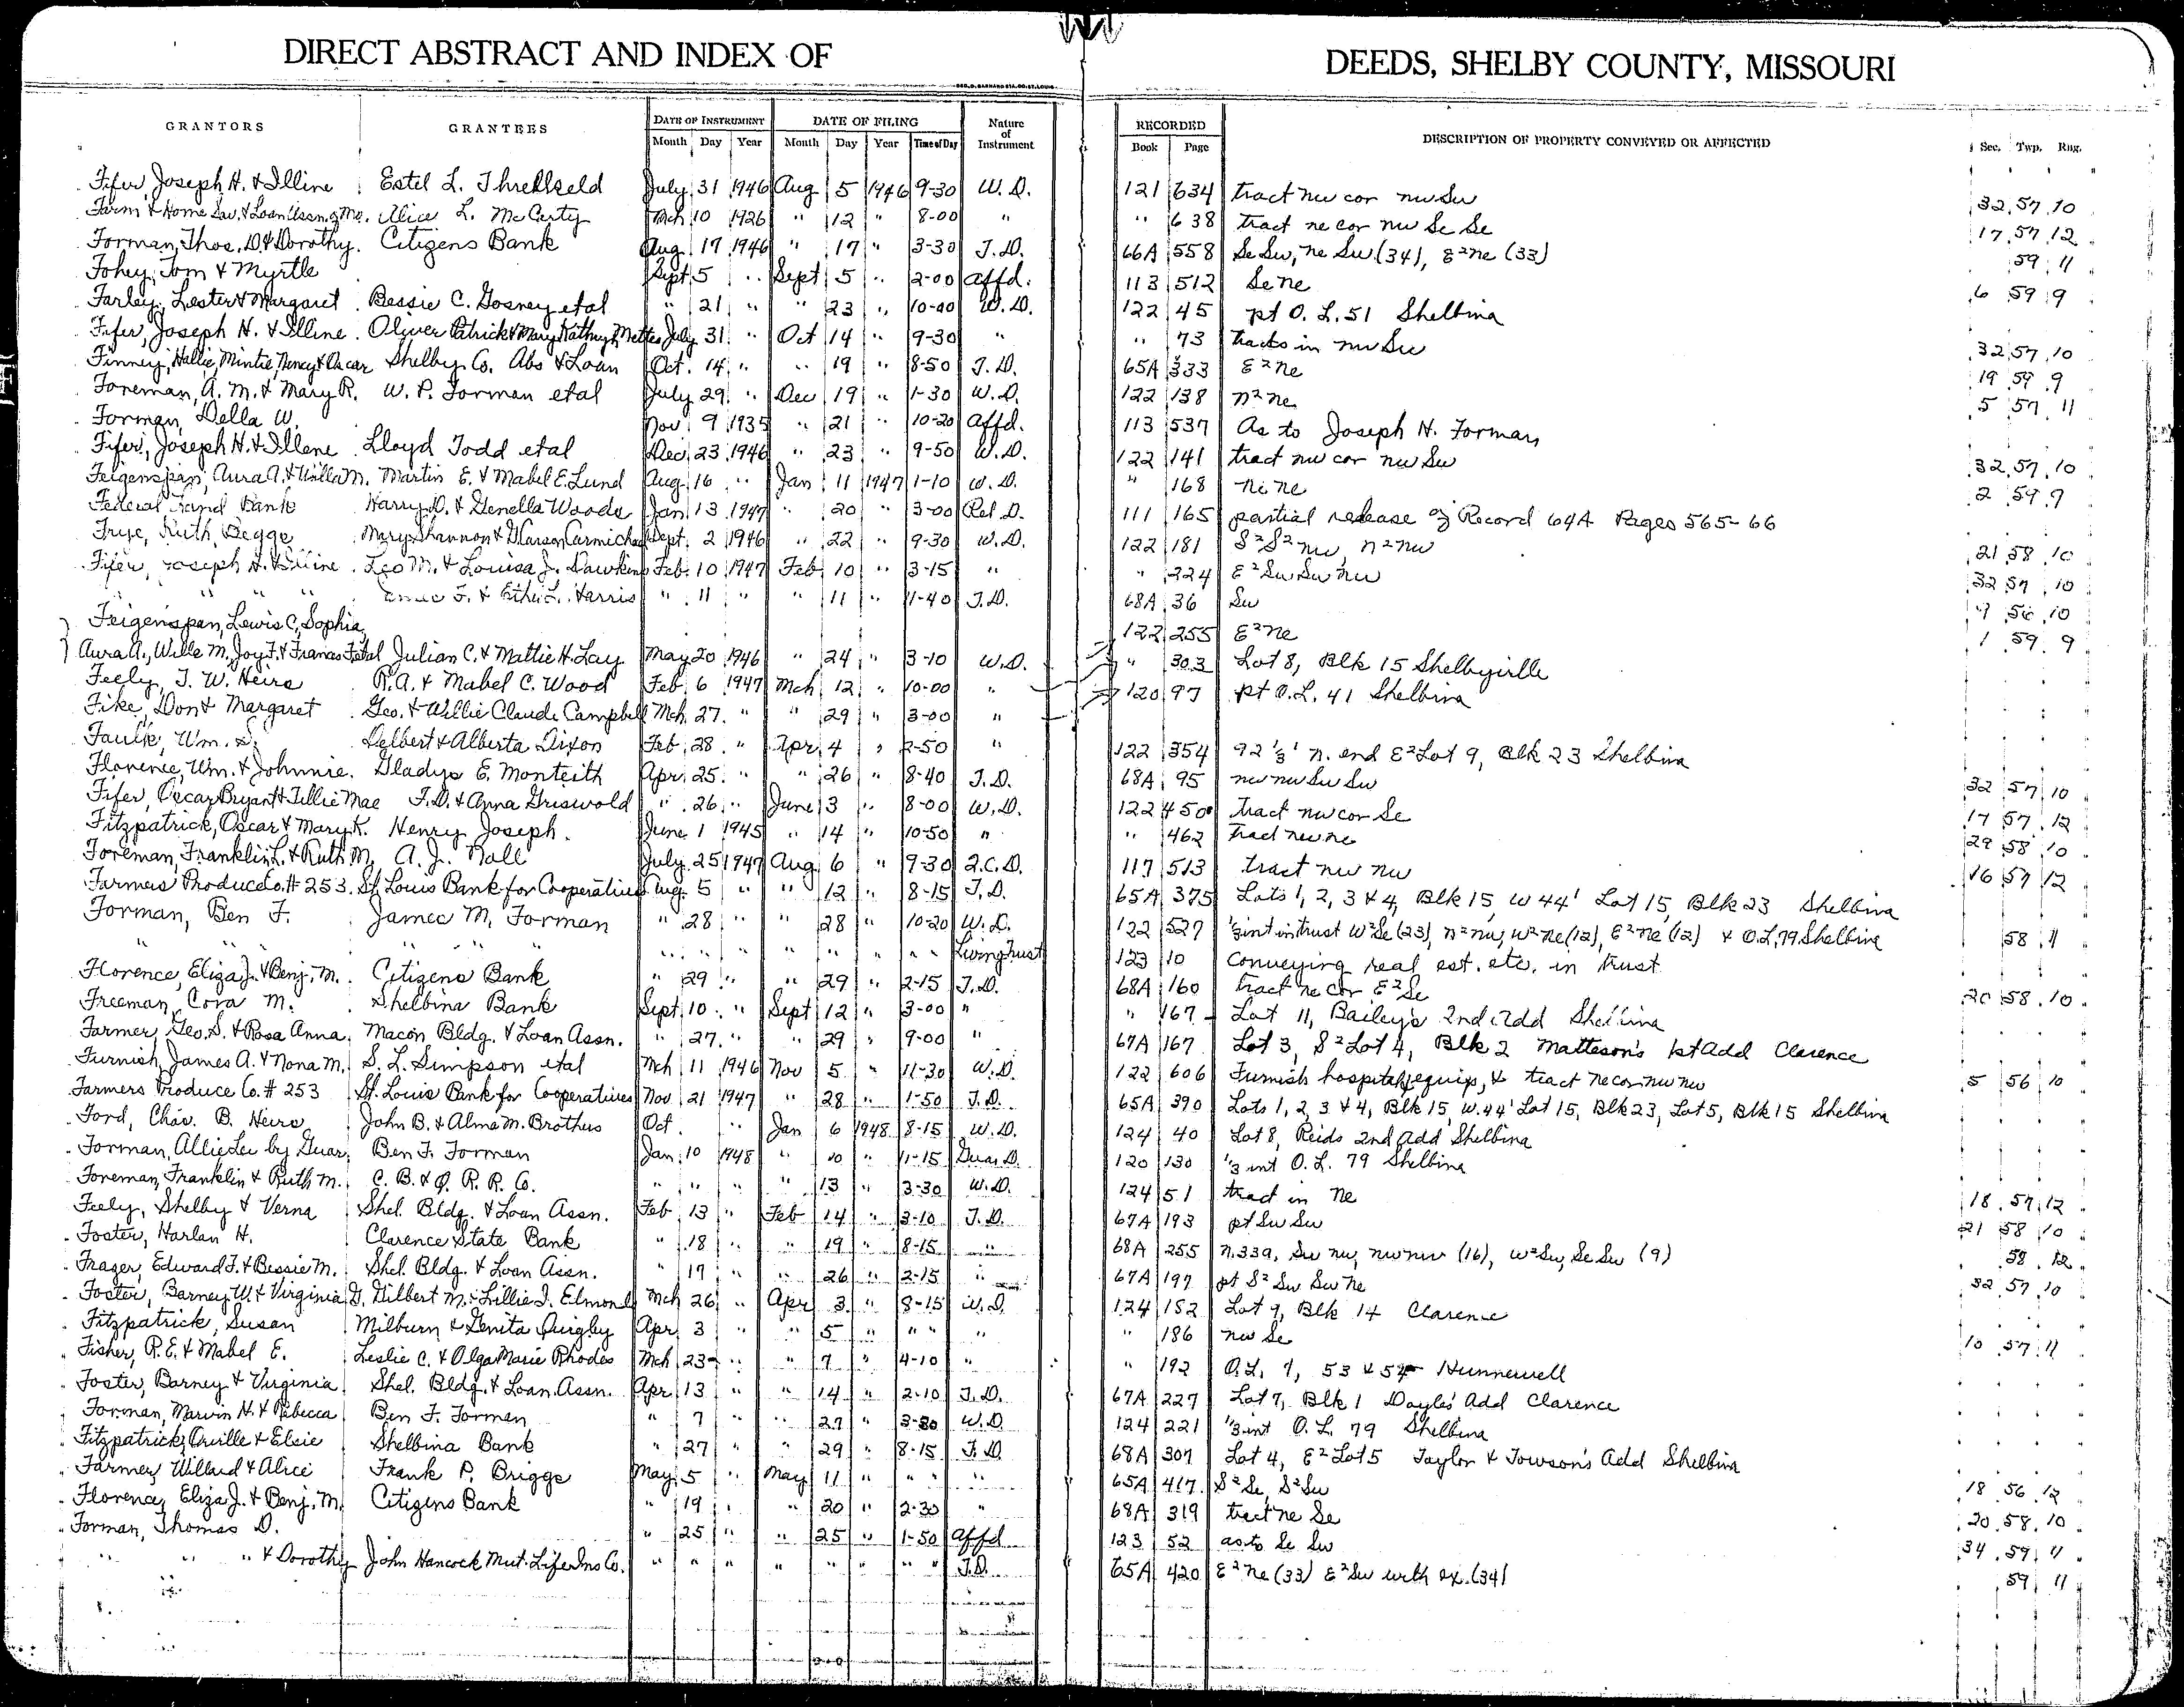 DIRECT ABSTRACT AND INDEX OF DEEDS, SHELBY COUNTY, MISSOURI
GRANTORS GRANTEES DATE OF INSTRUMENT DATE OF FILING Nature of Instrument RECORDED DESCRIPTION OF PROPERTY CONVEYED OR AFFECTED Sec. Twp. Rng.
Month Day Year Month Day Year Time of Day Book Page
Fifer, Joseph H. & Illine Estel L. Threlkeld July 31 1946 Aug 5 1946 9-30 W.D. 121 634 tract nw cor nw Sw 32 57 10
Farm & Home Sav. & Loan Assn. of Mo. Alice L. McCarty Mch 10 1926 " 12 " 8-00 " " 638 tract ne cor nw Se Se 17 57 12
Forman, Thos. D. & Dorothy. Citizens Bank Aug 17 1946 " 17 " 3-30 T.D. 66A 558 Se Sw, ne Sw (34), E²ne (33) 59 11
Fohey, Tom & Myrtle Sept 5 " Sept 5 " 2-00 Affd. 113 512 Se ne 6 59 9
Farley, Lester & Margaret Bessie C. Gosney etal " 21 " " 23 " 10-00 W.D. 122 45 pt O.L. 51 Shelbina
Fifer, Joseph H. & Illine. Oliver Patrick & Mary Kathryn Mettes July 31 " Oct 14 " 9-30 " " 73 tracts in nw Sw 32 57 10
Finney, Hallie, Mintie, Nency & Oscar Shelby Co. Abs & Loan Oct. 14 " " 19 " 8-50 T.D. 65A 333 E²ne 19 59 9
Foreman, A. M. & Mary R. W. P. Forman etal July 29 " Dec 19 " 1-30 W.D. 122 138 n²ne 5 57 11
Forman, Della W. Nov 9 1935 " 21 " 10-20 Affd. 113 537 As to Joseph H. Forman
Fifer, Joseph H. & Illene Lloyd Todd etal Dec 23 1946 " 23 " 9-50 W.D. 122 141 tract nw cor nw Sw 32 57 10
Feigenspan, Aura A. & Willa M. Martin E. & Mabel E. Lund Aug 16 " Jan 11 1947 1-10 W.D. " 168 ne ne 2 59 9
Federal Land Bank Harry D. & Genella Woods Jan 13 1947 " 20 " 3-00 Rel D. 111 165 partial release of Record 64A Pages 565-66
Frye, Ruth Begge Mary Shannon & Carmichael Sept. 2 1946 " 22 " 9-30 W.D. 122 181 S²S²nw, n²nw 21 58 10
Fifer, Joseph H. & Illine Leo M. & Louisa J. Dawkins Feb. 10 1947 Feb 10 " 3-15 " " 224 E²Sw Sw nw 32 57 10
" " " " F. & Ethel L. Harris " 11 " " 11 " 11-40 T.D. 68A 36 Sw 56 10
Feigenspan, Lewis C, Sophia, 122 255 E²ne 1 59 9
Aura A., Willa M, Joy F. & Frances F. etal Julian C. & Mattie H. Lay May 20 1946 " 24 " 3-10 W.D. " 303 Lot 8, Blk 15 Shelbyville
Feely, J. W. Heirs R. A. & Mabel C. Wood Feb 6 1947 Mch 12 " 10-00 " 120 97 pt O.L. 41 Shelbina
Fike, Don & Margaret Geo. & Willie Claude Campbell Mch 27 " " 29 " 3-00 "
Faulk, Wm. S. Delbert & Alberta Dixon Feb 28 " Apr 4 " 2-50 " 122 354 92⅓' n. end E²Lot 9, Blk 23 Shelbina
Florence, Wm. & Johnnie. Gladys E. Monteith Apr 25 " " 26 " 8-40 T.D. 68A 95 nw nw Sw Sw 32 57 10
Fifer, Oscar Bryant & Tillie Mae F.D. & Anna Griswold " 26 " June 3 " 8-00 W.D. 122 450 tract nw cor Se 17 57 12
Fitzpatrick, Oscar & Mary K. Henry Joseph. June 1 1945 " 14 " 10-50 " " 462 tract nw ne 29 58 10
Foreman, Franklin L. & Ruth M. A. J. Ball July 25 1947 Aug 6 " 9-30 Q.C.D. 117 513 tract nw nw 16 57 12
Farmers Produce Co. # 253. St. Louis Bank for Cooperatives Aug. 5 " " 12 " 8-15 T.D. 65A 375 Lots 1, 2, 3 & 4, Blk 15, W 44' Lot 15, Blk 23 Shelbina
Forman, Ben F. James M. Forman " 28 " " 28 " 10-20 W.D. 122 527 ⅓ int in trust W²Se (23), n²nw, W²ne (12), E²ne (12) & O.L. 79 Shelbina 58 11
" " " " " " " " " " " " " Living Trust 123 10 Conveying real est. etc. in trust
Florence, Eliza J. & Benj. M. Citizens Bank " 29 " " 29 " 2-15 T.D. 68A 160 tract ne cor E²Se 20 58 10
Freeman, Cora M. Shelbina Bank Sept 10 " Sept 12 " 3-00 " " 167 Lot 11, Bailey's 2nd Add Shelbina
Farmer, Geo. S. & Rosa Anna Macon Bldg. & Loan Assn. " 27 " " 29 " 9-00 " 67A 167 Lot 3, S²Lot 4, Blk 2 Matteson's 1st Add Clarence
Furnish, James A. & Nona M. S. L. Simpson etal Mch 11 1946 Nov 5 " 11-30 W.D. 122 606 Furnish hospital, equip, & tract ne cor nw nw 5 56 10
Farmers Produce Co. # 253 St. Louis Bank for Cooperatives Nov 21 1947 " 28 " 1-50 T.D. 65A 390 Lots 1, 2, 3 & 4, Blk 15, W. 44' Lot 15, Blk 23, Lot 5, Blk 15 Shelbina
Ford, Chas. B. Heirs John B. & Alma M. Brothers Oct. " Jan 6 1948 8-15 W.D. 124 40 Lot 8, Reids 2nd Add Shelbina
Forman, Allie Lee by Guar. Ben F. Forman Jan 10 1948 " 10 " 11-15 Guar D. 120 130 ⅓ int O.L. 79 Shelbina
Foreman, Franklin & Ruth M. C. B. & Q. R. R. Co. " " " " 13 " 3-30 W.D. 124 51 tract in ne 18 57 12
Feely, Shelby & Verna Shel. Bldg. & Loan Assn. Feb 13 " Feb 14 " 3-10 T.D. 67A 193 pt Sw Sw 21 58 10
Foster, Harlan H. Clarence State Bank " 18 " " 19 " 8-15 " 68A 255 n. 33a, Sw nw, nw nw (16), W²Sw, Se Sw (9) 58 12
Frager, Edward F. & Bessie M. Shel. Bldg. & Loan Assn. " 17 " " 26 " 2-15 " 67A 197 pt S² Sw Sw ne 32 57 10
Foster, Barney W. & Virginia D. Gilbert M. & Lillie I. Elmond Mch 26 " Apr 3 " 8-15 W.D. 124 182 Lot 9, Blk 14 Clarence
Fitzpatrick, Susan Milburn & Lenita Quigley Apr 3 " " 5 " " " " " 186 nw Se 10 57 11
Fisher, R. E. & Mabel E. Leslie C. & Olga Marie Rhodes Mch 23 " " 7 " 4-10 " " 192 O.L. 7, 53 & 54 Hunnewell
Foster, Barney & Virginia Shel. Bldg. & Loan Assn. Apr 13 " " 14 " 2-10 T.D. 67A 227 Lot 7, Blk 1 Doyle's Add Clarence
Forman, Marvin H. & Rebecca Ben F. Forman " 7 " " 27 " 3-30 W.D. 124 221 ⅓ int O.L. 79 Shelbina
Fitzpatrick, Orville & Elsie Shelbina Bank " 27 " " 29 " 8-15 T.D. 68A 307 Lot 4, E²Lot 5 Taylor & Towson's Add Shelbina
Farmer, Willard & Alice Frank P. Briggs May 5 " May 11 " " " " 65A 417 S²Se, S²Sw 18 56 12
Florence, Eliza J. & Benj. M. Citizens Bank " 19 " " 20 " 2-30 " 68A 319 tract ne Se 20 58 10
Forman, Thomas D. " 25 " " 25 " 1-50 Affd 123 52 as to Se Sw 34 59 11
" " " & Dorothy John Hancock Mut. Life Ins Co. " " " " " " " " T.D. 65A 420 E²ne (33) E²Sw with ex. (34) 59 11